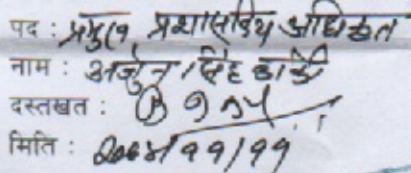 पद : प्रमुख प्रशासकिय अधिकृत
नाम : अर्जुन सिंह कार्की
दस्तखत :
मिति : २०७४/११/११